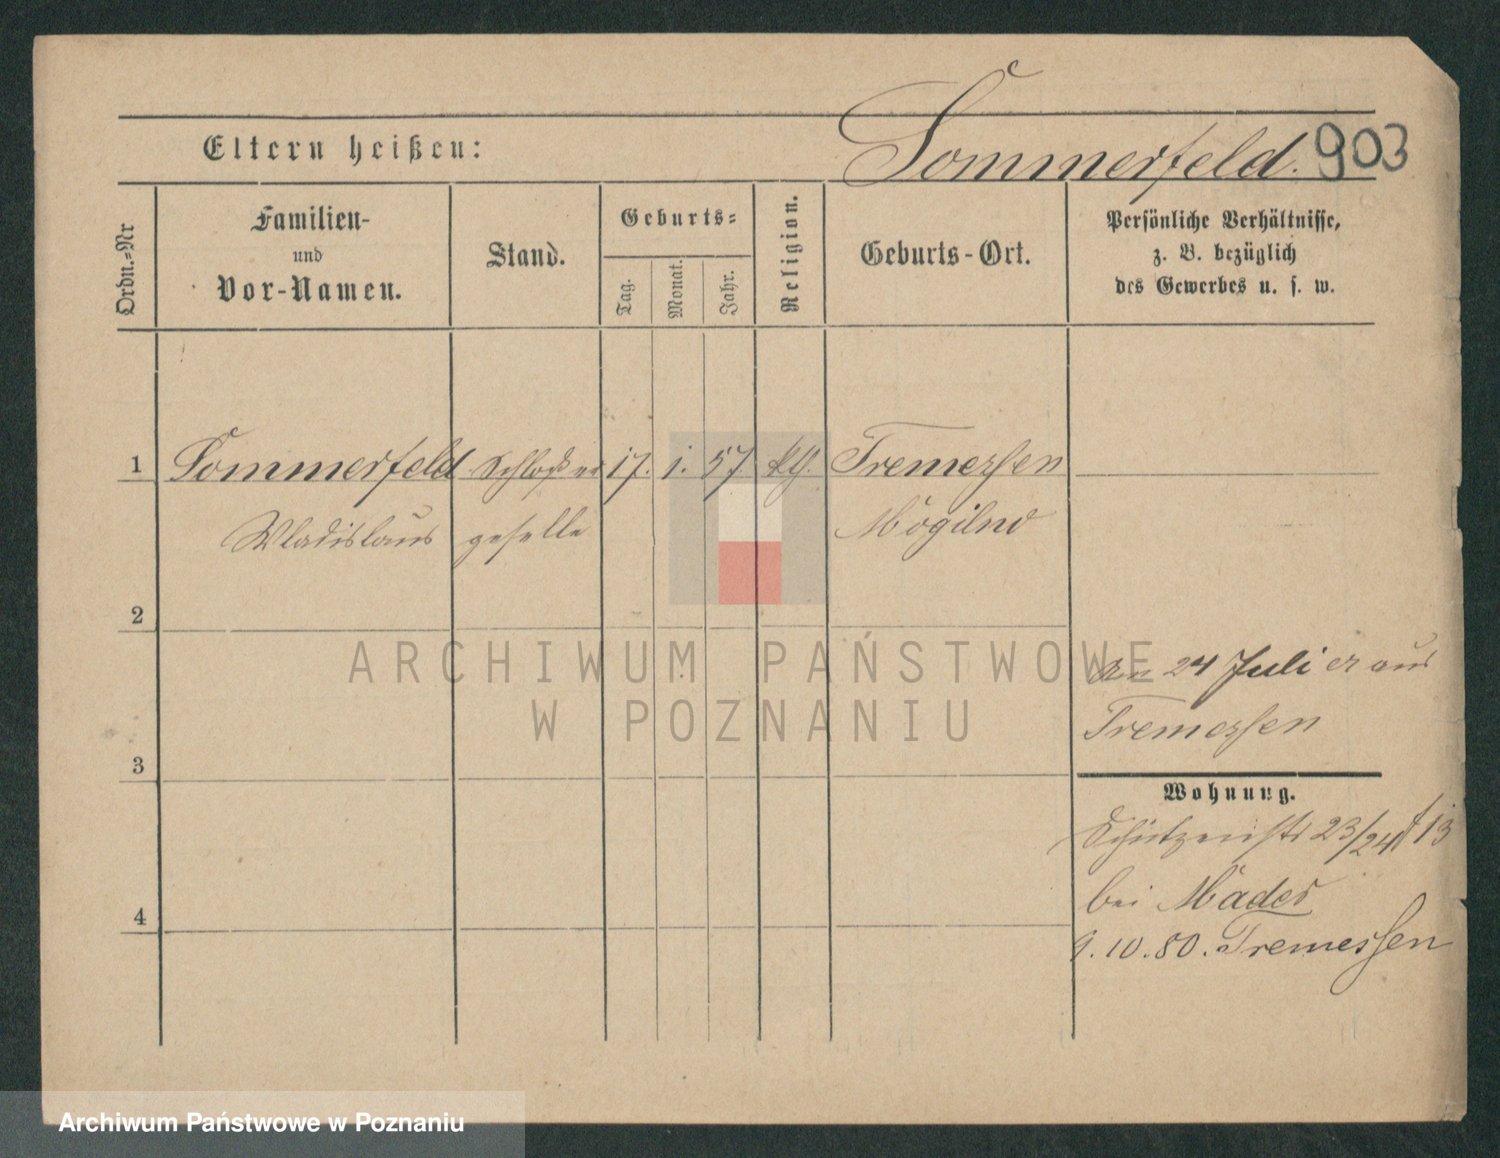 Sommerfeld. 903
Eltern heißen:
Ordn.=Nr
Familien-
und
Vor-Namen.
Stand.
Geburts=
Tag.
Monat.
Jahr.
Religion.
Geburts-Ort.
Persönliche Verhältnisse,
z. B. bezüglich
des Gewerbes u. s. w.
1 Sommerfeld Schlosser 17. 1. 57. Tremessen
Wladislaus geselle Mogilno
2
ARCHIWUM PAŃSTWOWE
W POZNANIU
24 Juli er aus
Tremessen
3
Wohnung.
Schützenstr 23/24 13
bei Mader
4
9.10.80. Tremessen
Archiwum Państwowe w Poznaniu